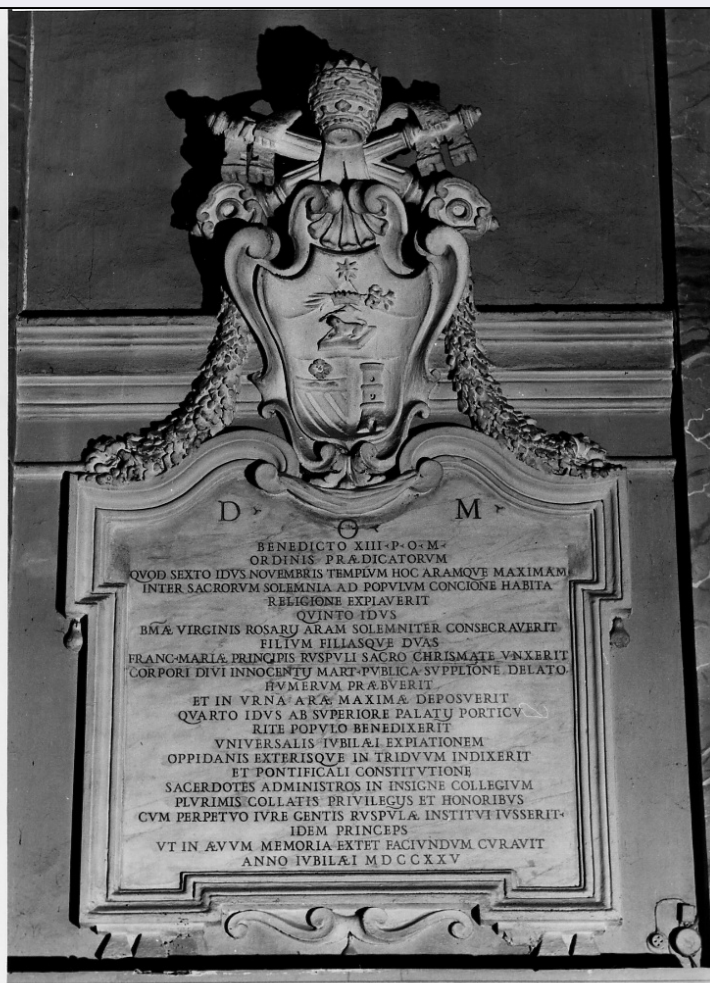 D O M
BENEDICTO XIII·P·O·M·
ORDINIS PRÆDICATORVM
QVOD SEXTO IDVS NOVEMBRIS TEMPLVM HOC ARAMQVE MAXIMAM
INTER SACRORVM SOLEMNIA AD POPVLVM CONCIONE HABITA
RELIGIONE EXPIAVERIT
QVINTO IDVS
BMÆ VIRGINIS ROSARIJ ARAM SOLEMNITER CONSECRAVERIT
FILIVM FILIASQVE DVAS
FRANC·MARIÆ PRINCIPIS RVSPVLI SACRO CHRISMATE VNXERIT
CORPORI DIVI INNOCENTIJ MART·PVBLICA SVPPLIONE DELATO
HVMERVM PRÆBVERIT
ET IN VRNA ARÆ MAXIMÆ DEPOSVERIT
QVARTO IDVS AB SVPERIORE PALATIJ PORTICV
RITE POPVLO BENEDIXERIT
VNIVERSALIS IVBILÆI EXPIATIONEM
OPPIDANIS EXTERISQVE IN TRIDVVM INDIXERIT
ET PONTIFICALI CONSTITVTIONE
SACERDOTES ADMINISTROS IN INSIGNE COLLEGIVM
PLVRIMIS COLLATIS PRIVILEGIJS ET HONORIBVS
CVM PERPETVO IVRE GENTIS RVSPVLÆ INSTITVI IVSSERIT·
IDEM PRINCEPS
VT IN ÆVVM MEMORIA EXTET FACIVNDVM CVRAVIT
ANNO IVBILÆI MDCCXXV